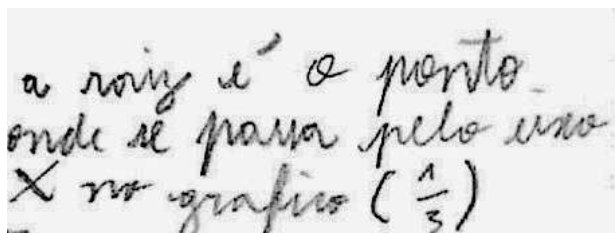 a raiz é o ponto
onde se passa pelo eixo
X no grafico (1/3)